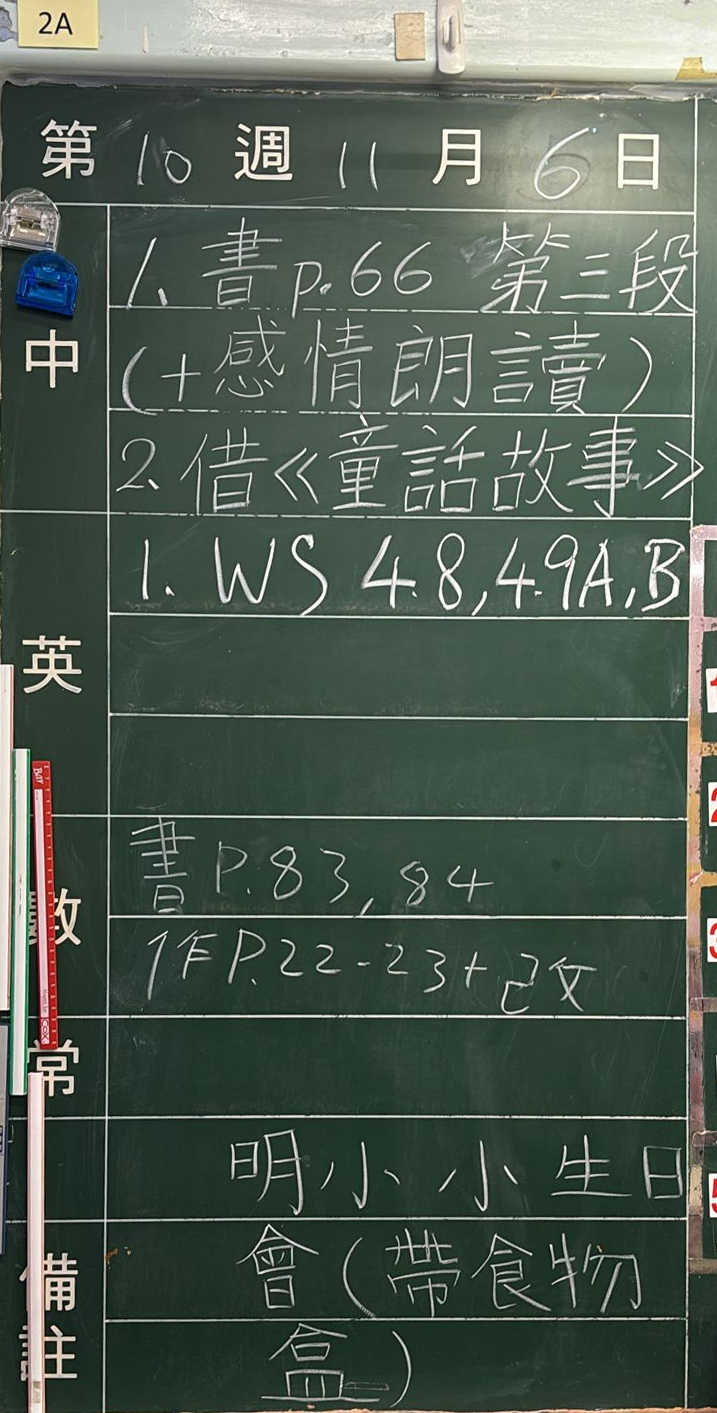 2A
第 10 週 11 月 6 日
中
1. 書 p.66 第三段
(+感情朗讀)
2. 借《童話故事》
英
1. WS 4.8, 4.9A, B
數
書 P.83, 84
作 P.22-23 + 改
常
備註
明小小生日
會(帶食物
盒)